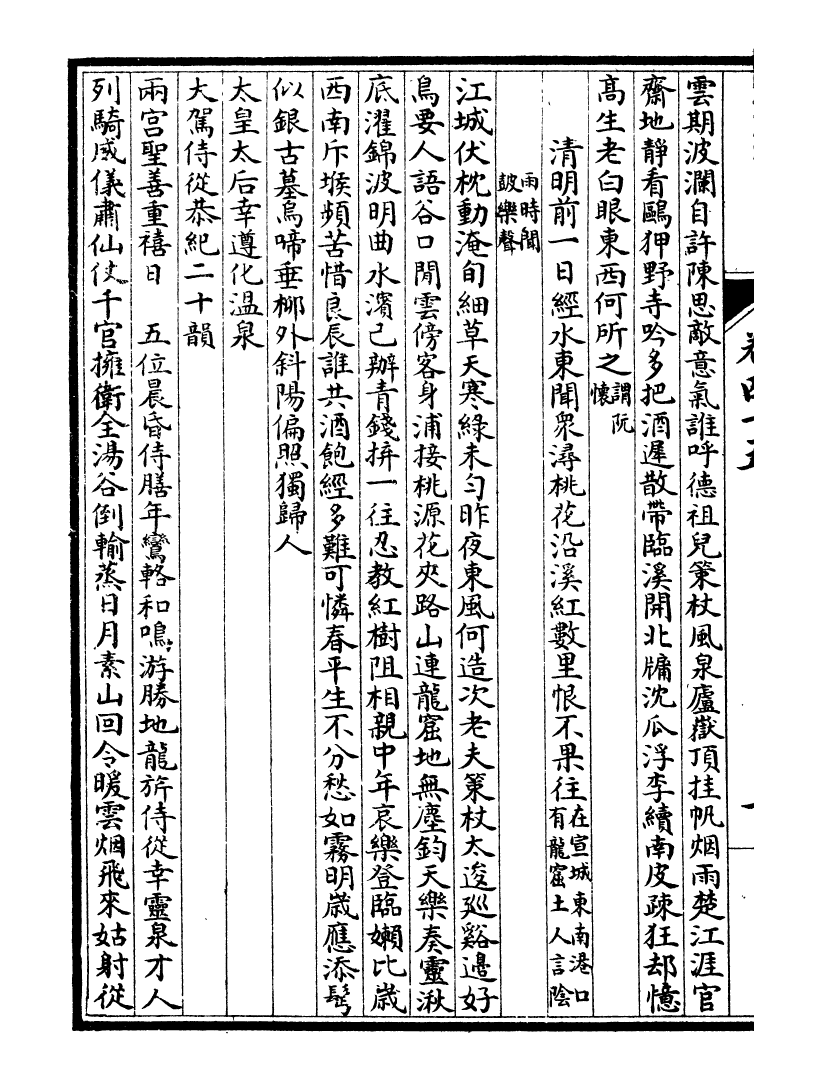 雲期波瀾自許陳思敵意氣誰呼德祖兒策杖風泉廬嶽頂挂帆烟雨楚江涯官
齋地靜看鷗狎野寺吟多把酒遲散帶臨溪開北牖沈瓜浮李續南皮疎狂却憶
高生老白眼東西何所之謂阮懷
清明前一日經水東聞衆潯桃花沿溪紅數里恨不果往在宣城東南港口有龍窟土人言陰
雨時聞鼓樂聲
江城伏枕動淹旬細草天寒綠未勻昨夜東風何造次老夫策杖太逡廵谿邊好
鳥要人語谷口閒雲傍客身浦接桃源花夾路山連龍窟地無塵鈞天樂奏靈湫
底濯錦波明曲水濱己辦青錢拚一往忍教紅樹阻相親中年哀樂登臨嬾比歲
西南斥堠頻苦惜良辰誰共酒飽經多難可憐春平生不分愁如霧明歲應添鬂
似銀古墓烏啼垂栁外斜陽偏照獨歸人
太皇太后幸遵化温泉
大駕侍從恭紀二十韻
兩宫聖善重禧日　五位晨昏侍膳年鸞輅和鳴游勝地龍旂侍從幸靈泉才人
列騎威儀肅仙仗千官擁衛全湯谷倒輸蒸日月素山回合暖雲烟飛來姑射從
卷四十五